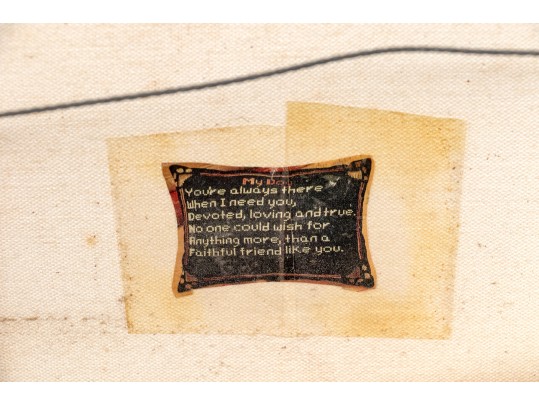 My Do
You're always there
When I need you,
Devoted, loving and true.
No one could wish for
Anything more, than a
Faithful friend like you.